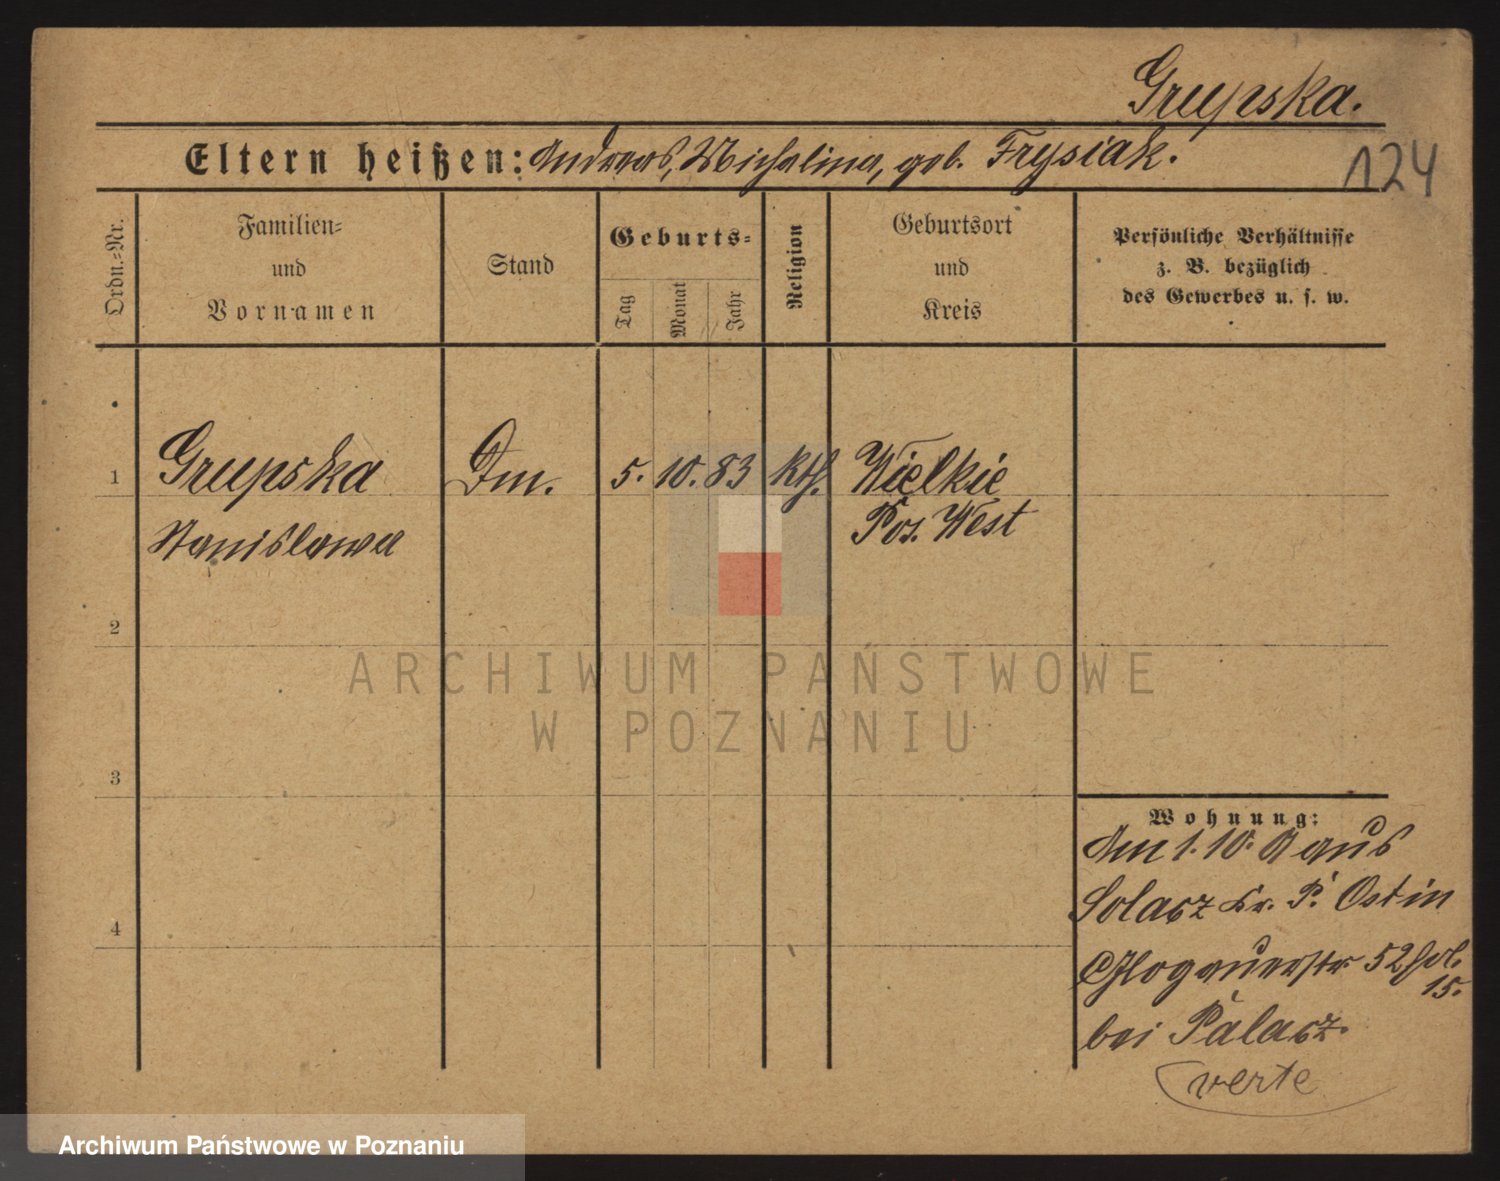 Grupska.
Eltern heißen: Andreas, Michalina, geb. Frysiak.
124
Ordn.-Nr.
Familien-
und
Vornamen
Stand
Geburts-
Tag
Monat
Jahr
Religion
Geburtsort
und
Kreis
Persönliche Verhältnisse
z. B. bezüglich
des Gewerbes u. s. w.
1
Grupska
Dm.
5. 10. 83
kth.
Wielkie
Stanislawa
Pos. West
2
ARCHIWUM PAŃSTWOWE
W POZNANIU
3
Wohnung:
Am 1. 10. aus
Solacz Kr. P. Ost in
Glogauerstr 52
15.
bei Palacz.
4
verte
Archiwum Państwowe w Poznaniu